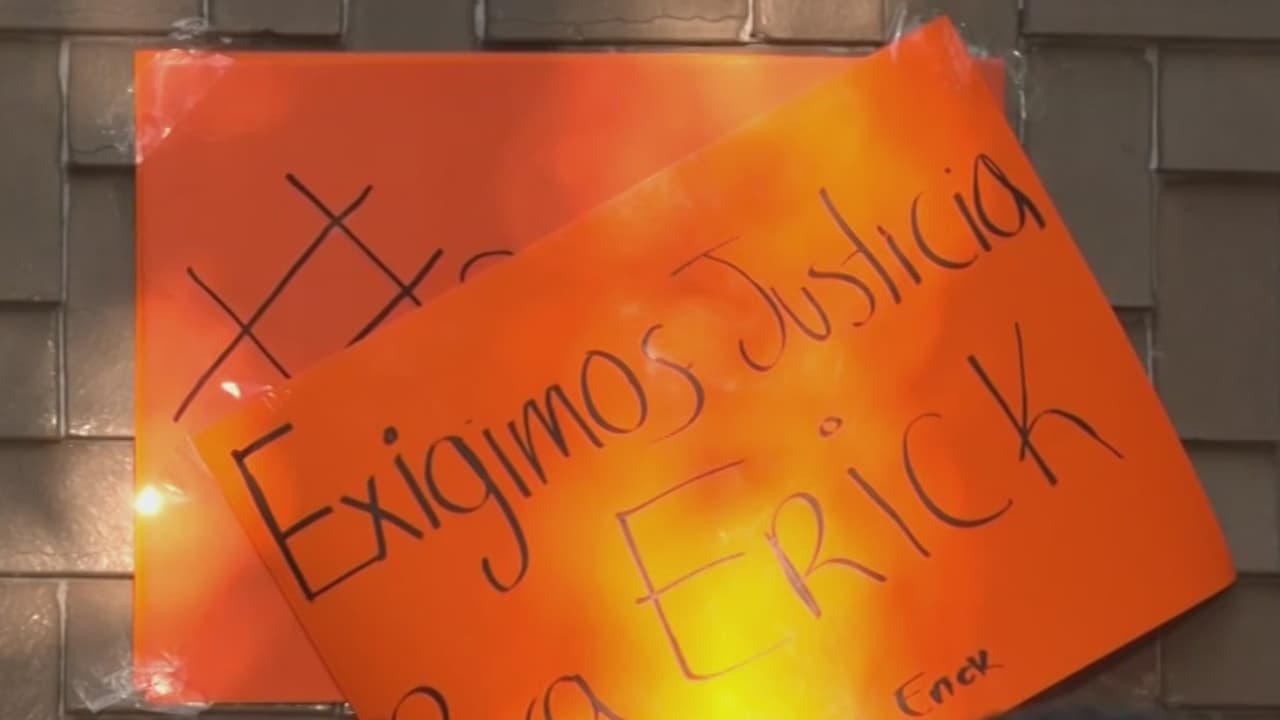 #
Exigimos Justicia
ERiCK
Erick